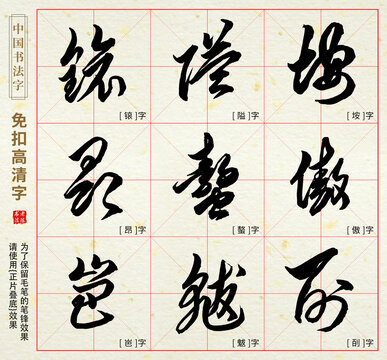 中国书法字
免扣高清字
为了保留毛笔的笔锋效果
请使用(正片叠底)效果
鎄 隘 垵
[锿]字 [隘]字 [垵]字
昂 螯 傲
[昂]字 [螯]字 [傲]字
岜 魃
[岜]字 [魃]字